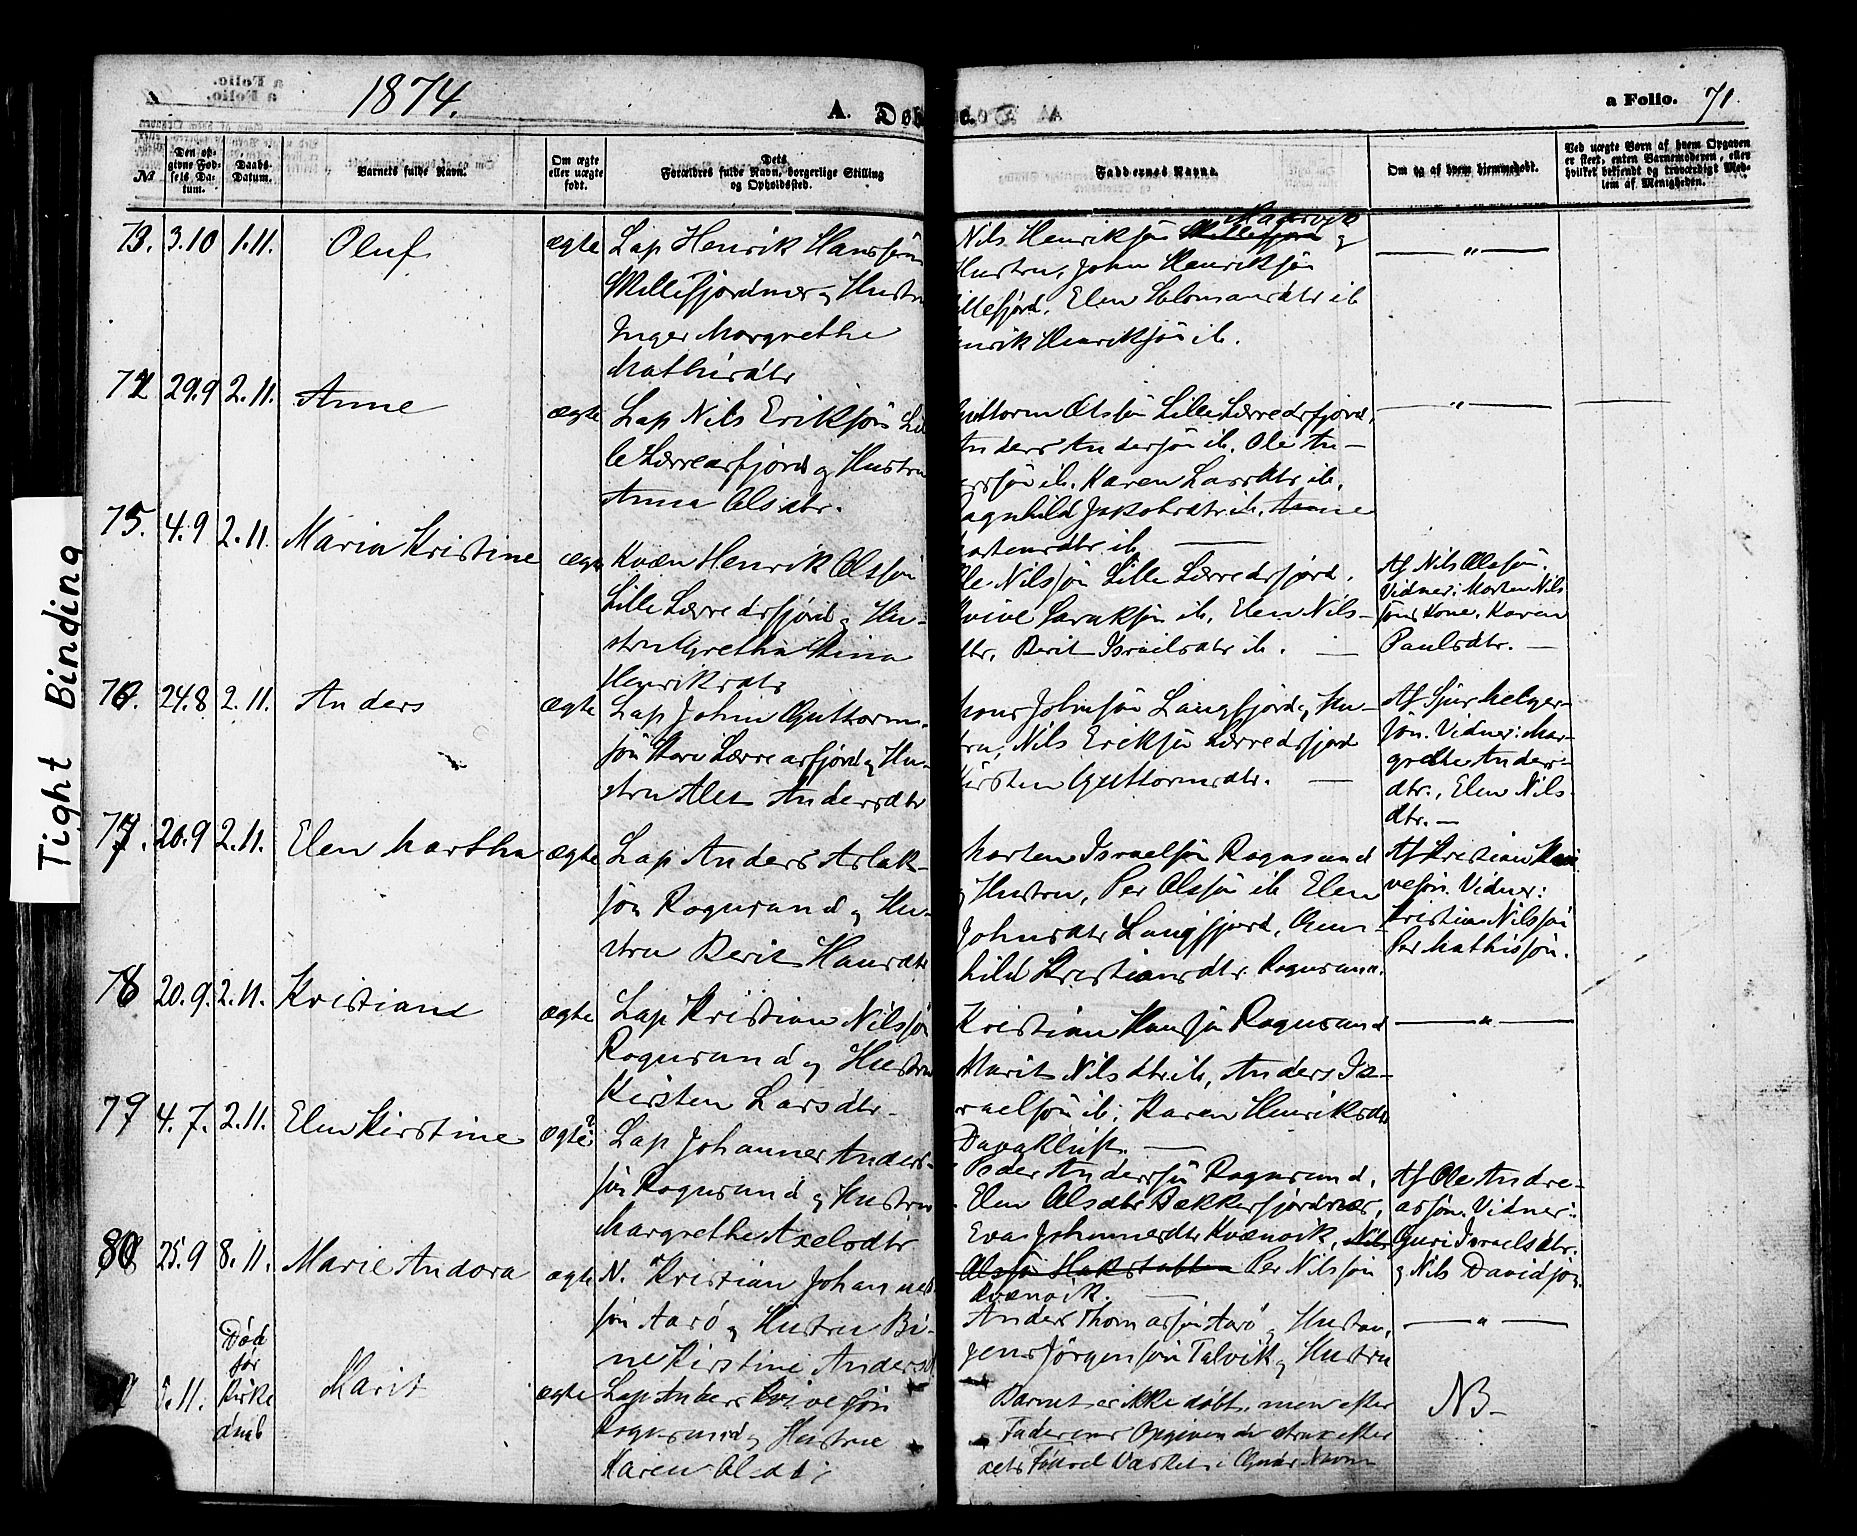 Tight Binding
1874.
A. Døb
e.
a Folio. 71.
№
Den opgivne Fødsels Datum.
Daabs-Datum.
Barnets fulde Navn.
Om ægte eller uægte født.
Dets Forældres fulde Navn, borgerlige Stilling og Opholdssted.
Faddernes Navne.
Om og af hvem hjemmedøbt.
Ved uægte Børn af hvem Opgaven er skeet, enten Barnemoderen, eller hvilket bekjendt og troværdigt Medlem af Menigheden.
73. 3.10 1.11. Oluf ægte Lap Henrik Hanssøn
Millefjordnær og Hustru
Inger Margrethe
Mathisdtr
Nils Henriksøn
Hustru, John Henriksøn
illefjord, Elen Salomansdtr ib
enrik Henriksøn ib.
— " —
74 29.9 2.11. Anne ægte Lap Nils Eriksøn Lil
le Lerredsfjord og Hustru
Anna Olsdtr.
Guttorm Olssøn Lille Lerredsfjord,
Anders Andersøn ib. Ole An-
erssøn ib. Karen Larsdtr ib.
agnhild Jakobsdtr ib. Anne
ortensdtr ib —
— " —
75. 4.9 2.11. Maria Kristine ægte Kvæn Henrik Olssøn
Lille Lerredsfjord og Hu-
stru Gretha Stina
Henriksdtr
Ole Nilssøn Lille Lerredsfjord.
ib. Elen Nils-
dtr. Berit Israelsdtr ib. —
Af Nils Olesøn.
Vidner: Morten Nils
søns Kone, Karen
Paulsdtr. —
76. 24.8 2.11. Anders ægte Lap John Guttorm-
søn Store Lerredsfjord og Hu-
stru Alet Andersdtr
hons Johnsøn Langfjord og Hu-
tru, Nils Eriksøn Lerredsfjord
Kirsten Guttormsdtr. —
Af Sjur Helger-
søn. Vidner: Mar-
grethe Anders-
dtr., Elen Nils
dtr. —
77. 20.9 2.11. Elen Martha ægte Lap Anders Aslak-
søn Rognsund og Hu-
stru Berit Hansdtr
Morten Israelsøn Rognsund
og Hustru, Per Olssøn ib Elen
Johnsdtr Langfjord, Gun-
hild Kristiansdtr Rognsund.
Af Kristian
vesøn. Vidner:
Kristian Nilssøn
Per Mathissøn.
78 20.9. 2.11. Kristiane ægte Lap Kristian Nilssøn
Rognsund og Hustru
Kirsten Larsdtr.
Kristian Hansøn Rognsund
Marit Nilsdtr ib, Anders Is-
raelsøn ib, Karen Henriksdtr
— " —
79 4.7. 2.11. Elen Kirstine ægte? Lap Johannes Anders-
søn Rognsund og Hustru
Margrethe Axelsdtr
Peder Anderssøn Rognsund,
Elen Olsdtr Bekkerfjordnær,
Eva Johannesdtr Kvænvik, Nils
Olssøn Per Nilssøn
Kvænvik. —
Af Ole Andre-
assøn. Vidner:
Guri Israelsdtr.
og Nils Davidsøn.
80 25.9 8.11. Marie Andora ægte N. Kristian Johannes
søn Aarö og Hustru Bi-
ne Kirstine Anders
Anders Thomassøn Aarö og Hustru,
Jens Jörgensøn Talvik og Hustru
— " —
5.11. Död
før
Kirke
daab
Marit ægte Lap Anders
Rognsund og Hustru
Karen Olsdtr
Barnet er ikke døbt, men efter
Faderens Opgivende strax efter
dets Födsel Vasket i Guds Navn
NB.